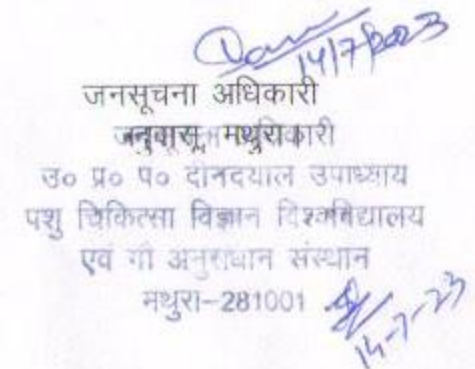 14/7/2023
जनसूचना अधिकारी
दुवासू, मथुरा।
जनसूचना अधिकारी
उ० प्र० प० दीनदयाल उपाध्याय
पशु चिकित्सा विज्ञान विश्वविद्यालय
एवं गौ अनुसंधान संस्थान
मथुरा-281001
14-7-23